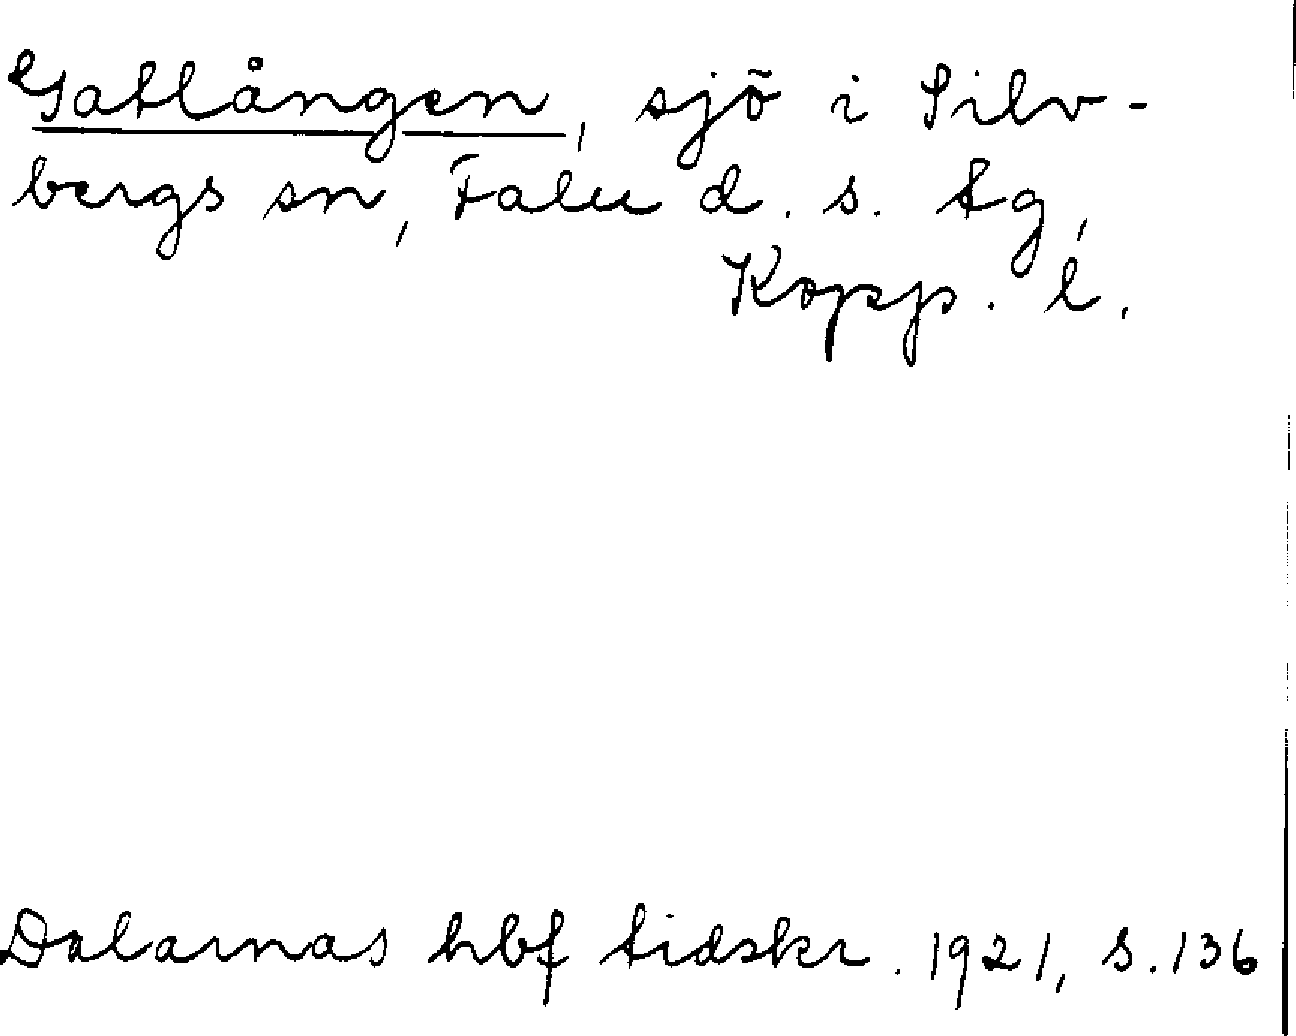 Gatlången, sjö i Silv-
bergs sn, Falu d. s. tg,
Kopp. l.
Dalarnas hbf tidskr. 1921, s. 136